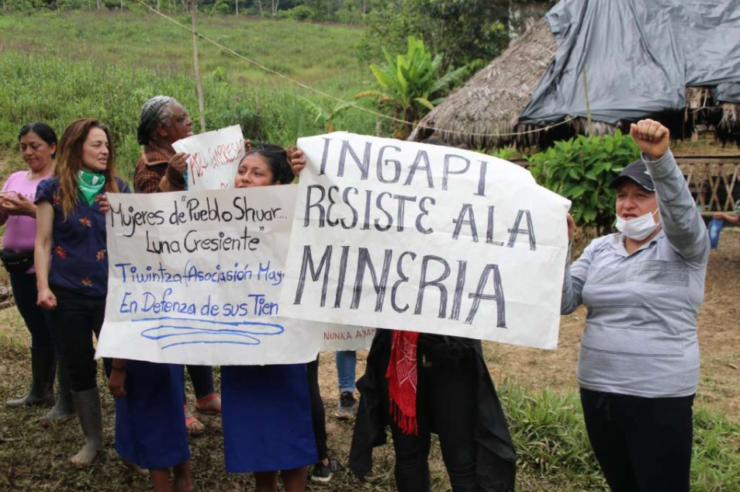 Mujeres de "Pueblo Shuar...
Luna Cresiente"
Tiwintza-Asociasión May
En Defenza de sus Tien
INGAPI
RESISTE ALA
MINERIA
NUNKA